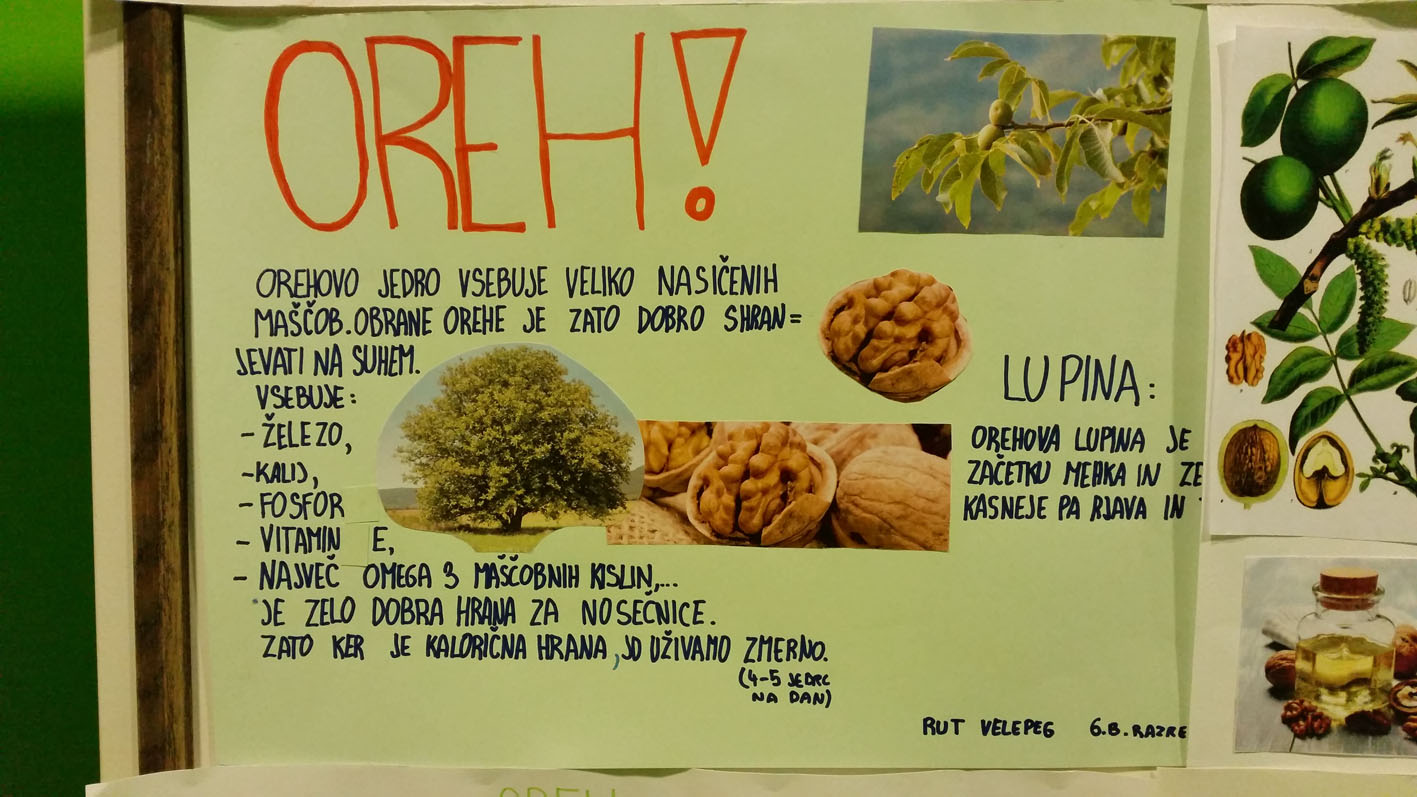 OREH!
OREHOVO JEDRO VSEBUJE VELIKO NASIČENIH
MAŠČOB. OBRANE OREHE JE ZATO DOBRO SHRAN=
JEVATI NA SUHEM.
VSEBUJE:
- ŽELEZO,
- KALIJ,
- FOSFOR
- VITAMIN E,
- NAJVEČ OMEGA 3 MAŠČOBNIH KISLIN,...
JE ZELO DOBRA HRANA ZA NOSEČNICE.
ZATO KER JE KALORIČNA HRANA, JO UŽIVAMO ZMERNO.
(4-5 JEDRC
NA DAN)
LUPINA:
OREHOVA LUPINA JE
ZAČETKU MEHKA IN ZE
KASNEJE PA RJAVA IN
RUT VELEPEG 6.B. RAZRE
OREH